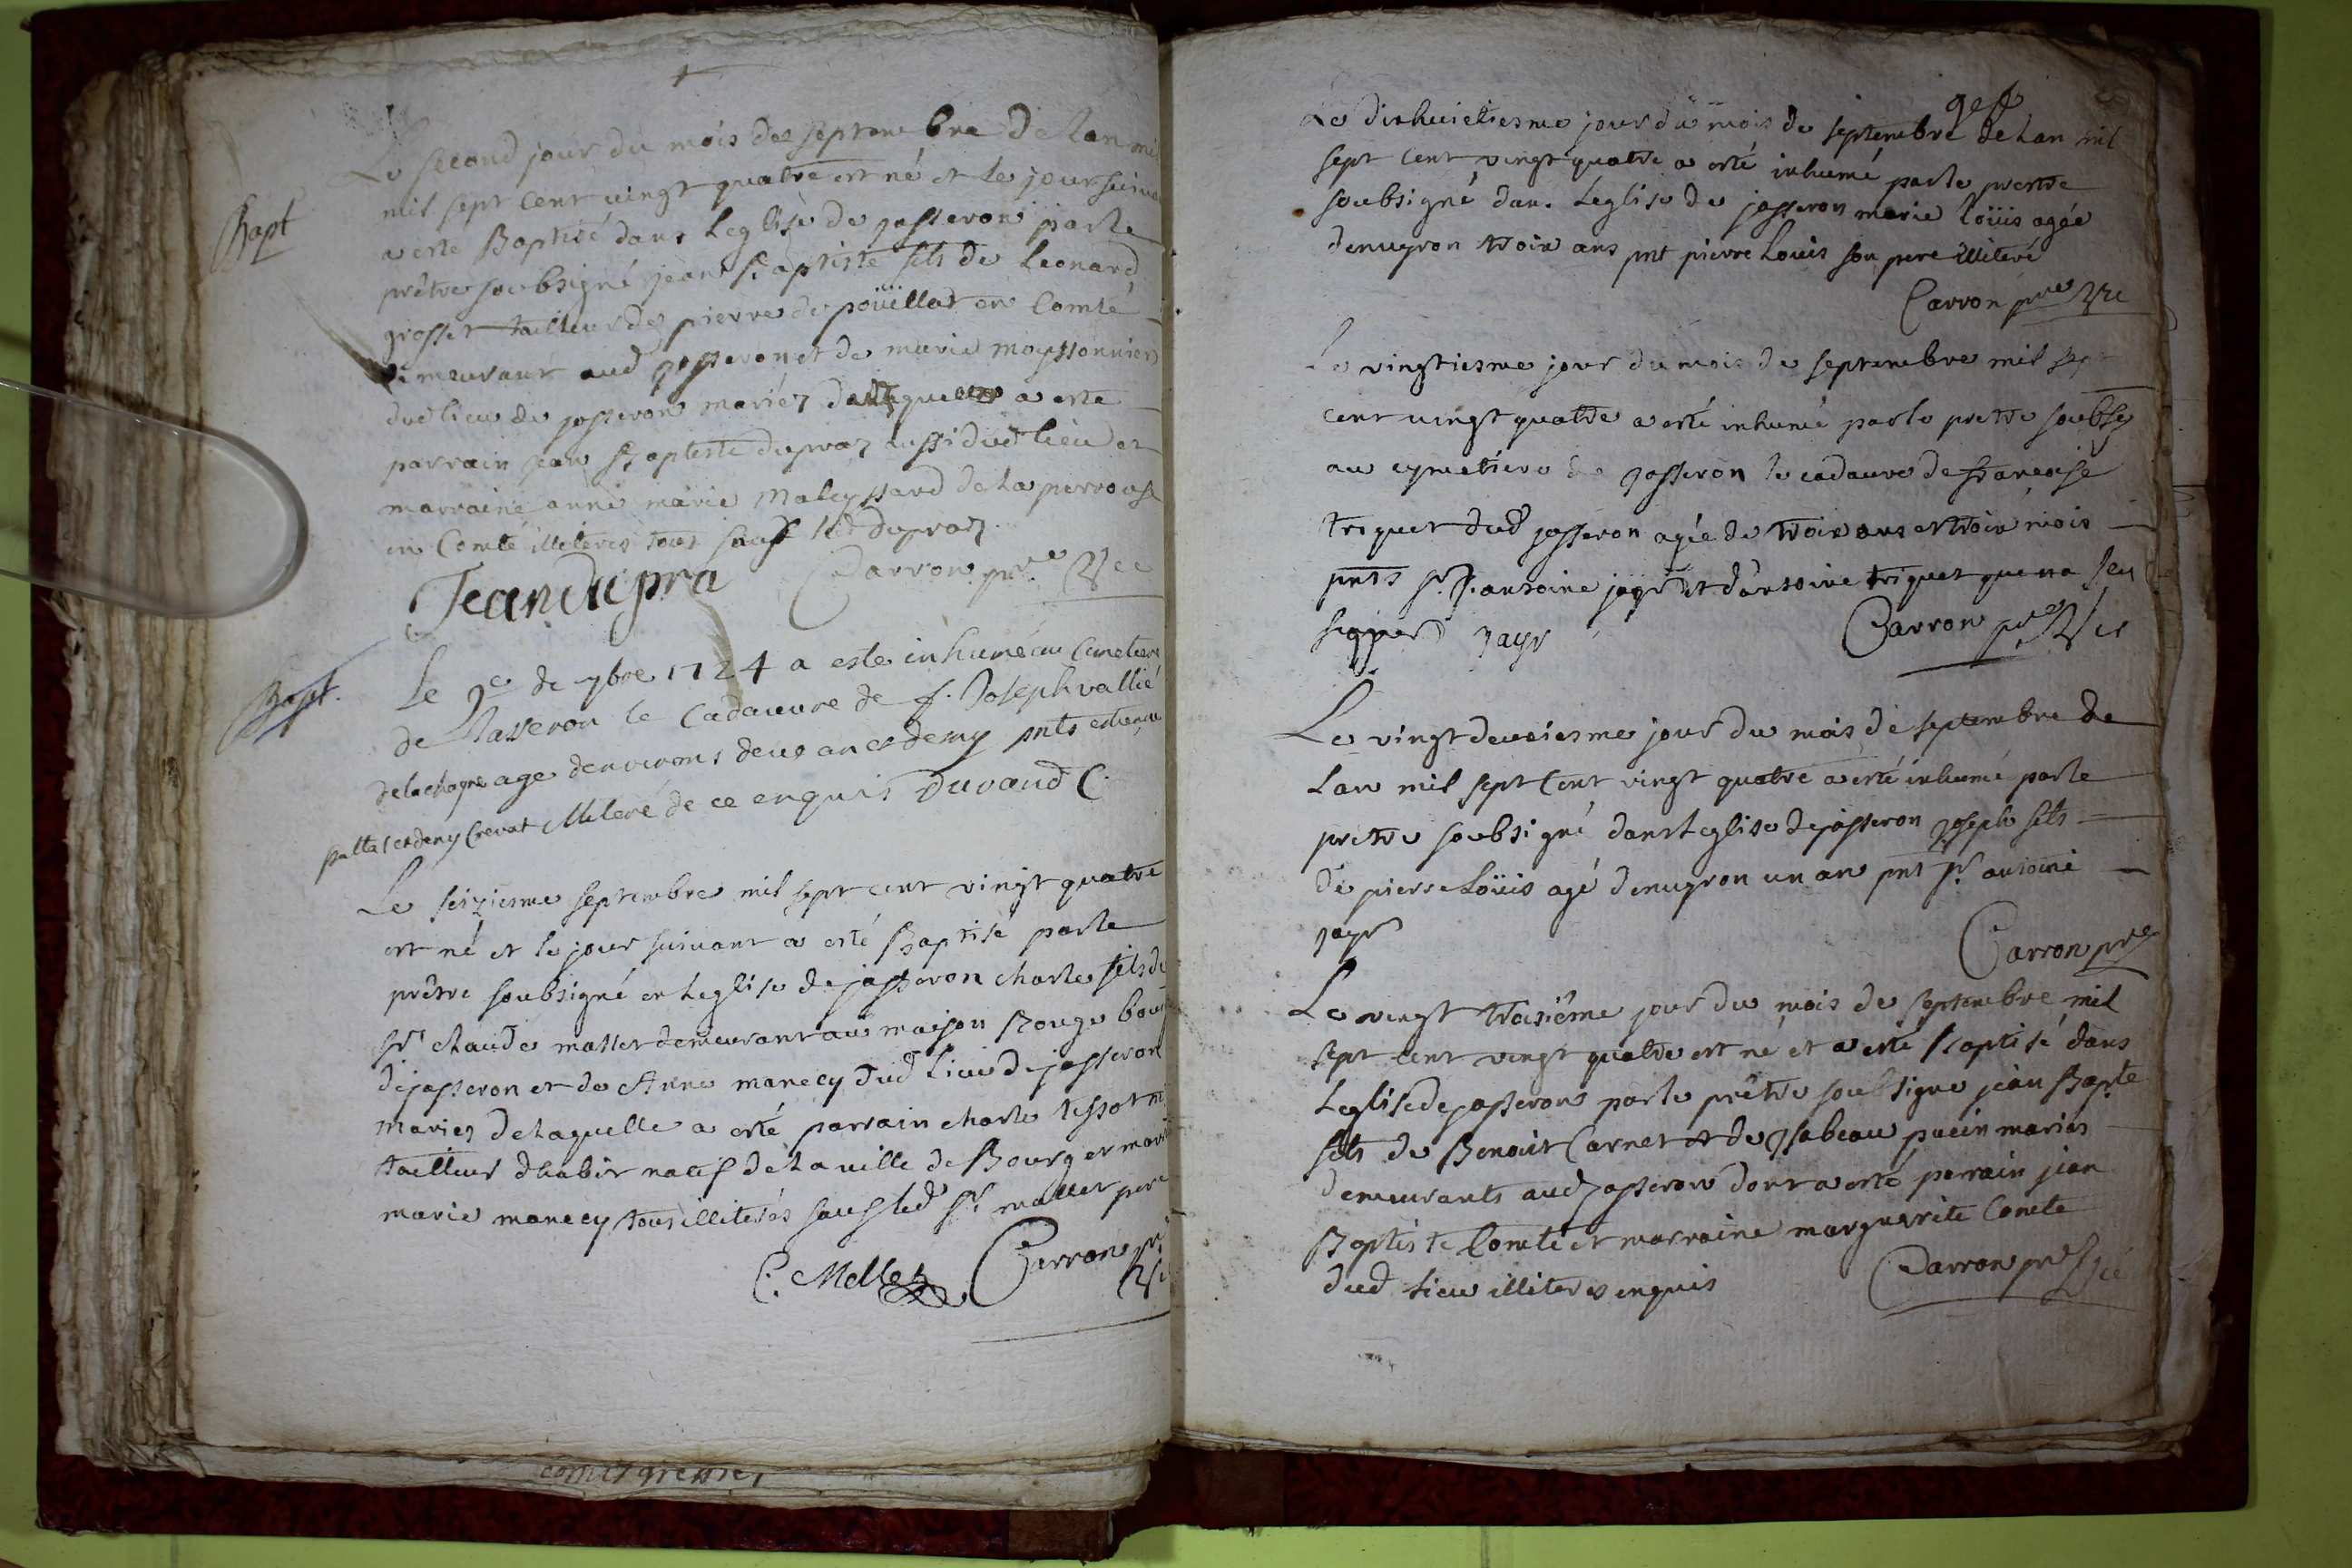 Bapt
Le second jour du mois de septembre de lan mil
mil sept cent vingt quatre est né et le jour suivant
a esté Baptisé dans Leglise de jasseron par le
prêtre soubsigné jean Baptiste fils de Leonard
grosset tailleur de pierre de poüillat en Comté
demeurant aud jasseron et de marie moyssonnier
dud lieu de jasseron mariez de laquelle a esté
parrain jean Baptiste dupraz aussi dud lieu et
marraine anne marie Maleyssard de la perrouse
en Comté illiteres tous sauf led dupraz
Jean dupra Carron pre Vic
Bapt.
Le 9e de 7bre 1724 a este inhumé au Cimetiere
de Jasseron le Cadavure de f. Joseph vallié
de la chagne age denvirons deux an et demy pnts estienne
et deny Crevat illiteré de ce enquis Durand C.
Le seizieme septembre mil sept cent vingt quatre
est né et le jour suivant a esté Baptisé par le
prêtre soubsigné en Leglise de jasseron charle fils de
Sr claude mallet demeurant au maison Rouge
de jasseron et de Anne manecy dud Lieu de jasseron
mariez de laquelle a esté parrain charle tessot
tailleur dhabit natif de la ville de Bourg et
marie manecy tous illiterés sauf led Sr mallet pere
C. Mellet Carron pr
Vic
Le dixhuictiesme jour du mois de septembre de Lan mil
sept cent vingt quatre a esté inhumé par le prestre
soubsigné dans Leglise de jasseron marie loüis agée
denvyron trois ans pnt pierre Louis son pere illiteré
Carron pre Vic
Le vingtiesme jour du mois de septembre mil sept
cent vingt quatre a esté inhumé par le pretre soubsg
au cymetiere de jasseron le cadavre de francoise
triquet dud jasseron agée de trois ans et trois mois
pnts Sr P. antoine jayr et dantoine triquet que na sceu
signer Jayr Carron pre Vic
Le vingt deuxiesme jour du mois de septembre de
Lan mil sept Cent vingt quatre a esté inhumé par le
pretre soubsigné dans Leglise de jasseron joseph fils
de pierre Loüis agé denvyron un an pnt Sr antoine
jayr
Carron pre
Le vingt troisiéme jour du mois de septembre mil
sept cent vingt quatre est né et a esté Baptisé dans
Leglise de jasseron par le prêtre soubsigné jean Bapte
fils de Benoit Carnet et de ysabeau pucin mariés
demeurants aud jasseron dont a esté parrain jean
Baptiste Comte et marraine marguerite Comte
dud Lieu illiteres enquis Carron pre Vic